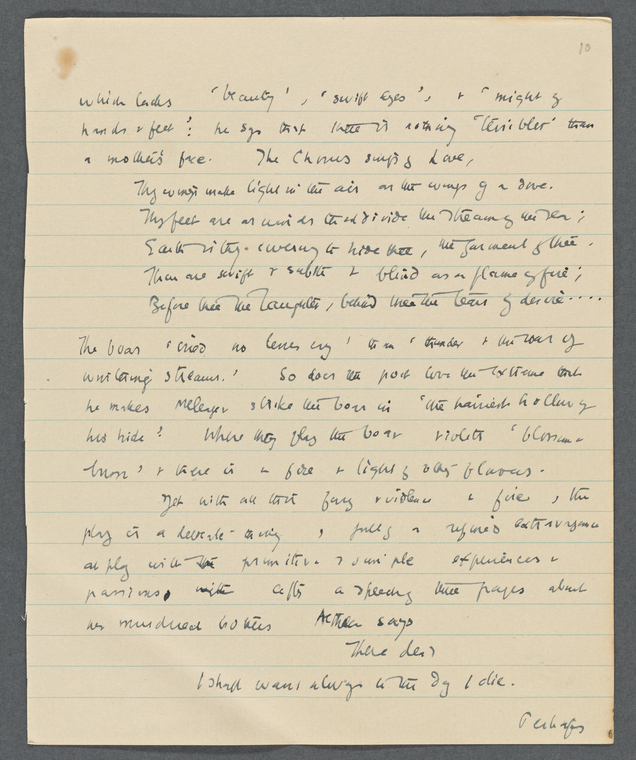 10
which lacks 'beauty', 'swift eyes', & 'might of
hands & feet': he says that there is nothing 'terribler' than
a mother's face. The Chorus sings of Love,
Thy wings make light in the air as the wings of a dove.
Thy feet are as winds that divide the stream of the sea;
Earth is thy covering to hide thee, the garment of thee.
Thou art swift & subtle & blind as a flame of fire;
Before thee the laughter, behind thee the tears of desire....
The boar 'cried no lesser cry' than 'thunder & the roar of
wintering streams.' So does the poet love the extreme that
he makes Meleager strike the boar in 'the hairiest hollow of
his hide': Where they flay the boar violets 'blossom &
burn' & there is a fire & light of other flowers.
Yet with all that fury & violence & fire, the
play is a delicate thing, full of a refined extravagance
at play with the primitive & simple experiences &
passions, after a speech three pages about
her murdered brothers Althea says
These dead
I shall want always to the day I die.
Perhaps